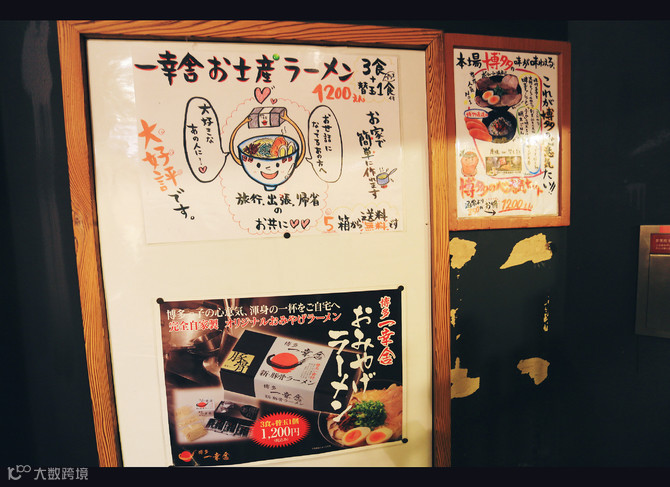 一幸舎 お土産 ラーメン
3食
+
替玉1食付
1200えん
大好きな
あの人に!
お世話に
なってるあの方へ
お家で
簡単に作れます
大好評です。
旅行、出張、帰省
の
お共に
5箱から送料無料です
博多っ子の心意気、渾身の一杯をご自宅へ
完全自家製 オリジナルおみやげラーメン
博多 一幸舎
おみやげ
ラーメン
博多
一幸舎
新・豚骨ラーメン
3食+替玉1個
1,200円
博多 一幸舎
本場 博多の味が味わえる。
これが博多
1200えん
大数跨境